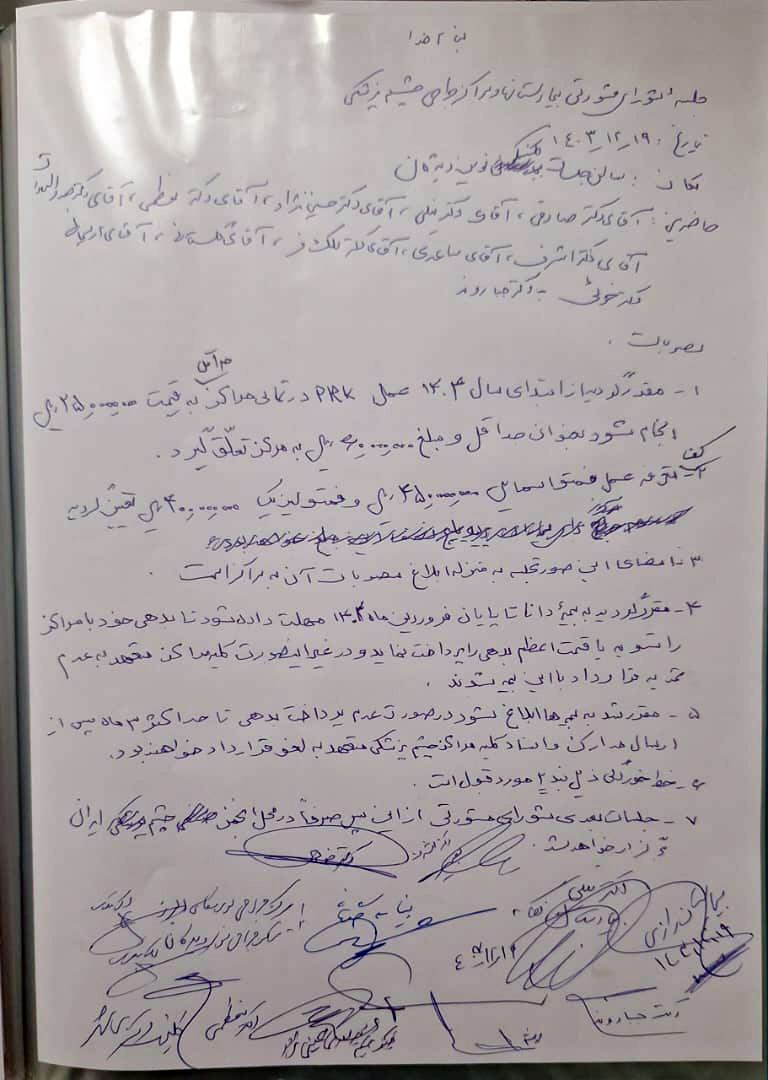 بنام خدا
جلسه شورای مشورتی بیمارستانها و مراکز جراحی چشم پزشکی
تاریخ : ۱۴۰۳٫۱۲٫۱۹
مکان : سالن جلسات کلینیک نوین دیدگان
حاضرین : آقای دکتر صادقی ، آقای دکتر نیلی ، آقای دکتر حسین نژاد ، آقای دکتر لطفی ، آقای دکتر
آقای دکتر اشرف ، آقای ساعدی ، آقای دکتر ملک فر ، آقای گلستانه ، آقای
دکتر خوئی - دکتر جباروند
مصوبات :
۱- مقدر گردید از ابتدای سال ۱۴۰۴ عمل PRK در تمامی مراکز به قیمت حداقل ۲۵۰٫۰۰۰٫۰۰۰ ریال
انجام شود بعنوان حداقل و مبلغ ۵۰٫۰۰۰٫۰۰۰ ریال به مرکز تعلق گیرد .
۲- کف تعرفه عمل فمتو اسمایل ۴۵۰٫۰۰۰٫۰۰۰ ریال و فمتو لیزیک ۴۰۰٫۰۰۰٫۰۰۰ ریال تعیین گردید
۳- امضای این صورتجلسه به منزله ابلاغ مصوبات آن به مراکز است .
۴- مقرر گردید به بیمه دانا تا پایان فروردین ماه ۱۴۰۴ مهلت داده شود تا بدهی خود با مراکز
را تسویه یا قسمت اعظم بدهی را پرداخت نماید و در غیر اینصورت کلیه مراکز متعهد به عدم
تمدید قرارداد با این بیمه شوند .
۵- مقرر شد به بیمه ها ابلاغ شود در صورت عدم پرداخت بدهی تا حداکثر ۳ ماه پس از
ارسال مدارک و اسناد کلیه مراکز چشم پزشکی متعهد به لغو قرارداد خواهند بود .
۶- خط خوردگی ذیل بند ۲ مورد قبول است .
۷- جلسات بعدی شورای مشورتی از این پس صرفاً در محل انجمن چشم پزشکی ایران
برگزار خواهد شد .
بیمارستان رازی
دکتر نیلی
۱۴۰۳٫۱۲٫۱۹
دکتر جباروند
دکتر لطفی